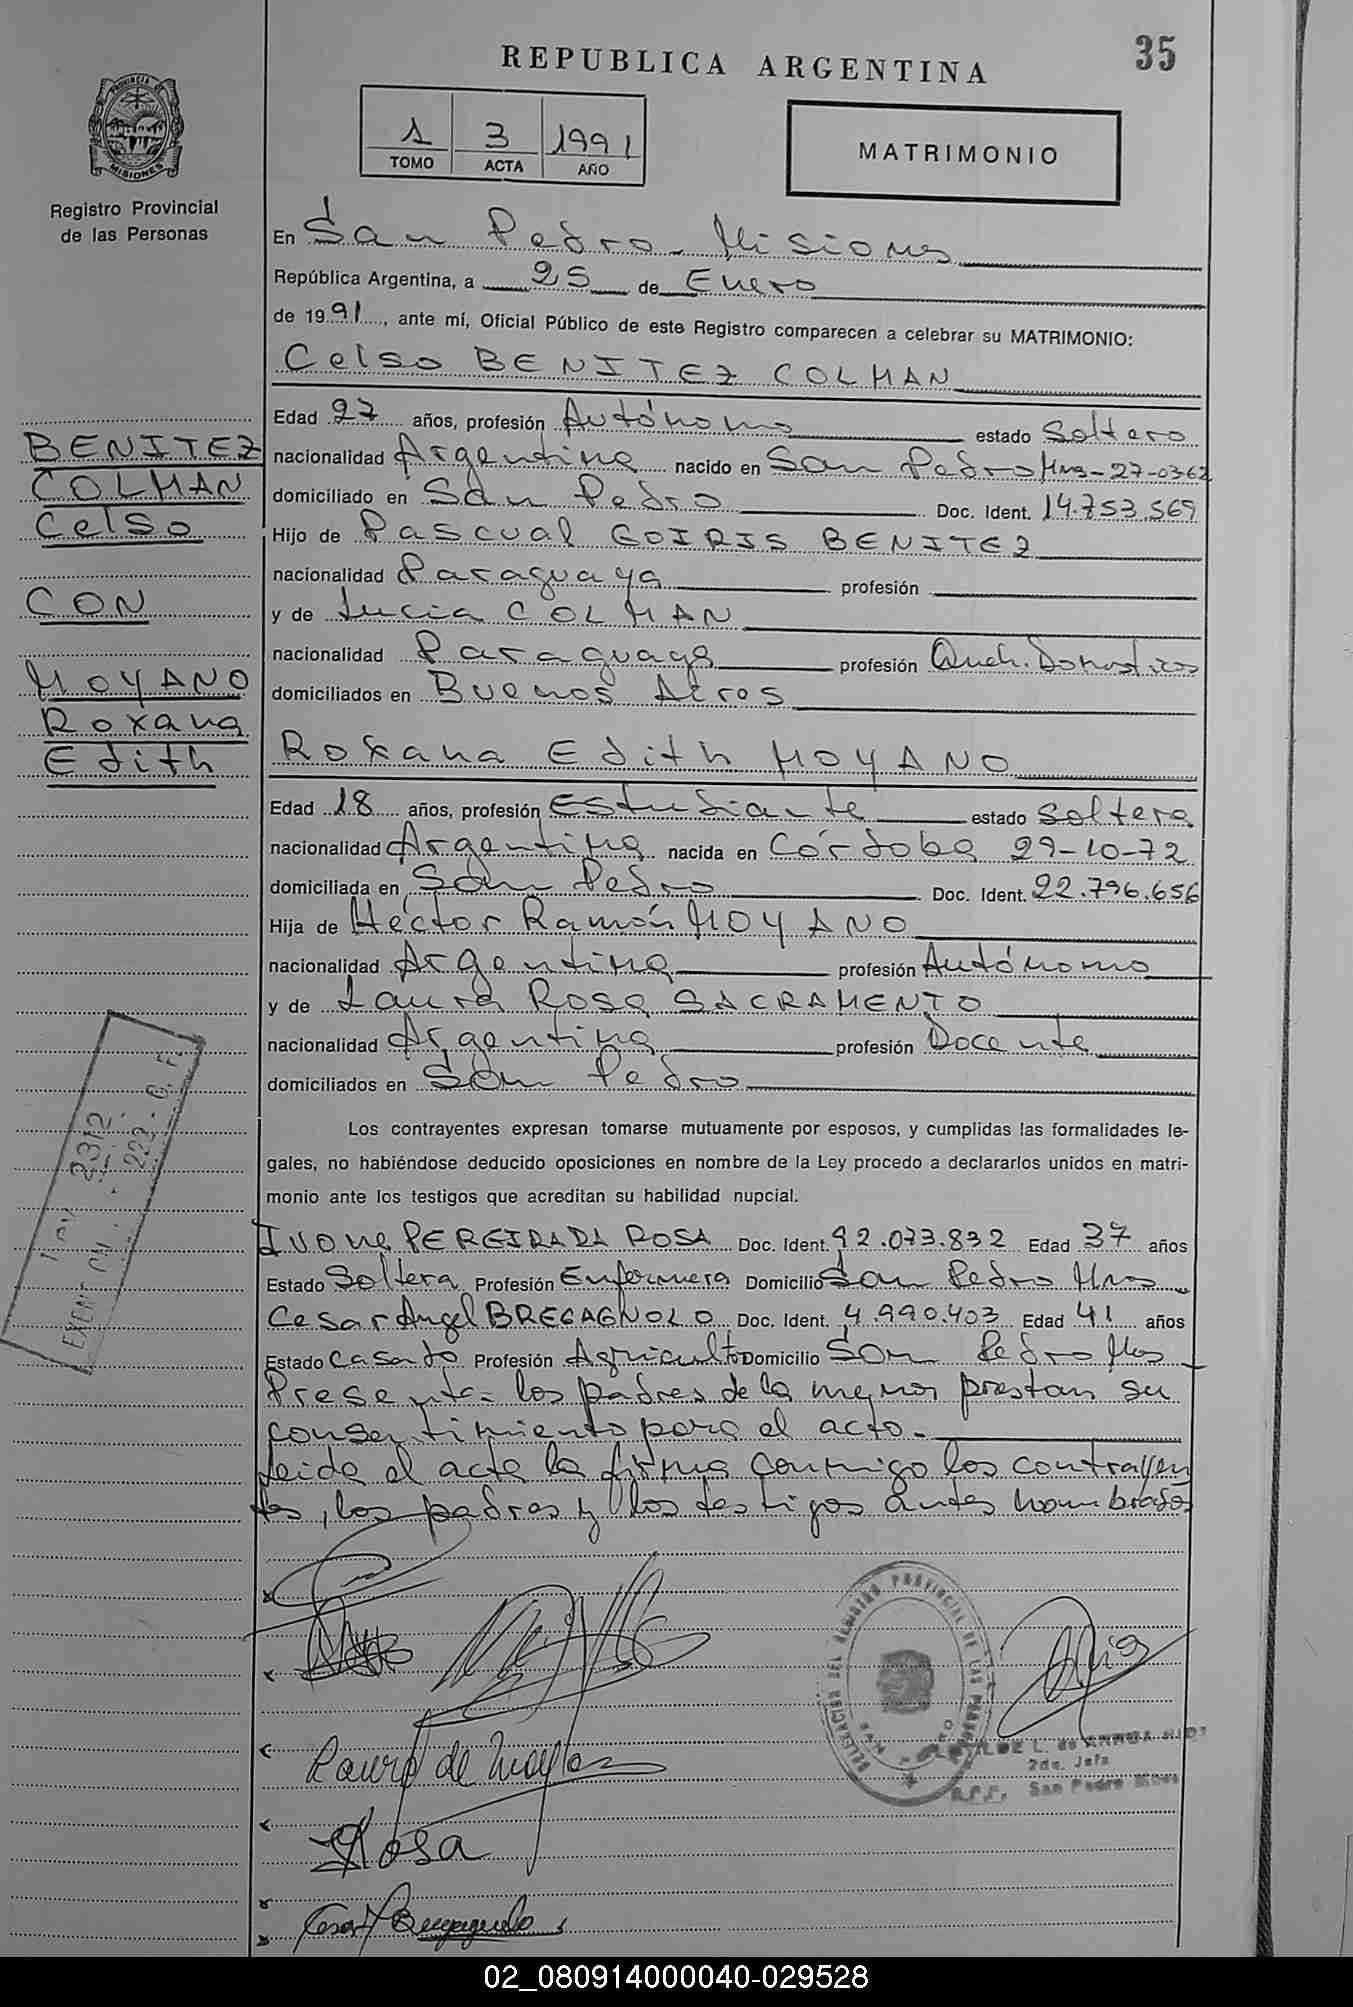 35
REPUBLICA ARGENTINA
PROVINCIA DE
MISIONES
Registro Provincial
de las Personas
1 3 1991
TOMO ACTA AÑO
MATRIMONIO
En San Pedro - Misiones
República Argentina, a 25 de Enero
de 1991, ante mí, Oficial Público de este Registro comparecen a celebrar su MATRIMONIO:
Celso BENITEZ COLMAN
BENITEZ
COLMAN
Celso
CON
MOYANO
Roxana
Edith
Edad 27 años, profesión Autónomo estado Soltero
nacionalidad Argentina nacido en San Pedro Mns-27-03-62
domiciliado en San Pedro Doc. Ident. 14.753.569
Hijo de Pascual GOIRIS BENITEZ
nacionalidad Paraguaya profesión
y de Lucia COLMAN
nacionalidad Paraguaya profesión Queh. Domesticos
domiciliados en Buenos Aires
Roxana Edith MOYANO
Edad 18 años, profesión Estudiante estado Soltera
nacionalidad Argentina nacida en Córdoba 29-10-72
domiciliada en San Pedro Doc. Ident. 22.796.656
Hija de Héctor Ramón MOYANO
nacionalidad Argentina profesión Autónomo
y de Laura Rosa SACRAMENTO
nacionalidad Argentina profesión Docente
domiciliados en San Pedro
Los contrayentes expresan tomarse mutuamente por esposos, y cumplidas las formalidades le-
gales, no habiéndose deducido oposiciones en nombre de la Ley procedo a declararlos unidos en matri-
monio ante los testigos que acreditan su habilidad nupcial.
LEY 2312
222
Ivone PEREIRA DA ROSA Doc. Ident. 92.073.832 Edad 37 años
Estado Soltera Profesión Enfermera Domicilio San Pedro Mns
Cesar Angel BREGAGNOLO Doc. Ident. 4.990.403 Edad 41 años
Estado Casado Profesión Agricultor Domicilio San Pedro Mns
Presente - los padres de la menor prestan su
consentimiento para el acto.-
Leida el acta la firma conmigo los contrayen
tes, los padres y los testigos antes nombrados
DELEGACION DEL REGISTRO PROVINCIAL DE LAS PERSONAS
Laura de Moyano
Rosa
Cesar A Bregagnolo
2da. Jefa
San Pedro Mnes
02_080914000040-029528